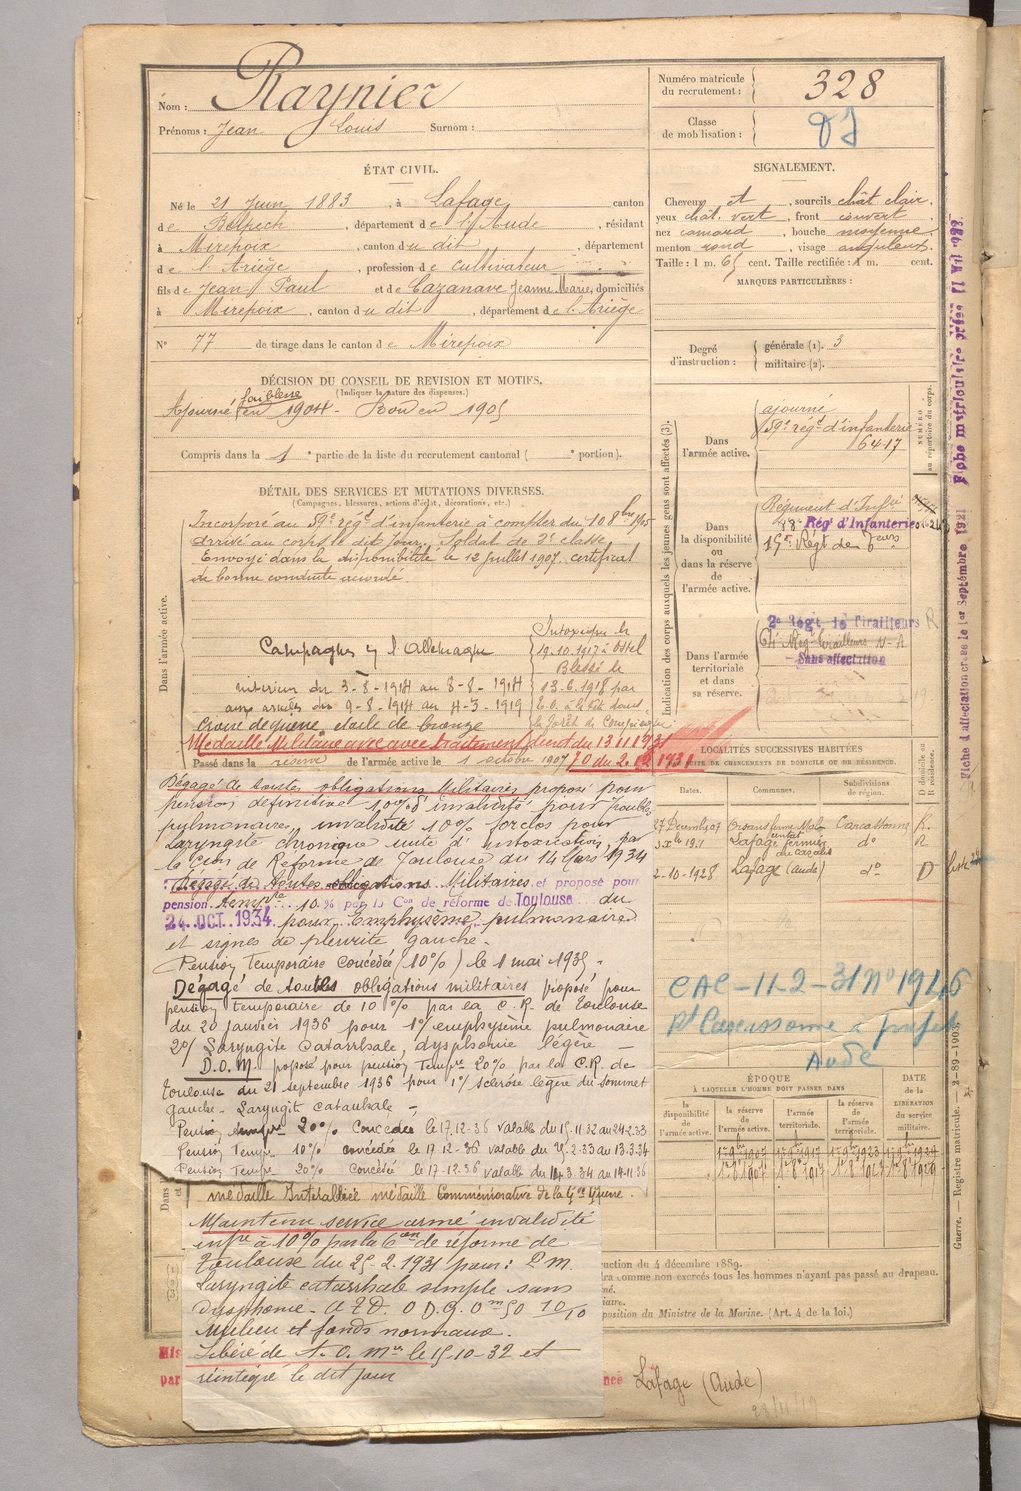 Nom : Raynier
Prénoms : Jean Louis Surnom :
Numéro matricule du recrutement : 328
Classe de mobilisation :
ÉTAT CIVIL.
Né le 21 Juin 1883, à Lafage canton
de Belpech, département de l'Aude, résidant
à Mirepoix, canton du dit, département
de l'Ariège, profession de cultivateur
fils de Jean Paul et de Cazanave Jeanne Marie, domiciliés
à Mirepoix, canton du dit, département de l'Ariège
N° 77 de tirage dans le canton de Mirepoix
SIGNALEMENT.
Cheveux et, sourcils chât clair.
yeux chât. vert, front couvert
nez camard, bouche moyenne.
menton rond, visage anguleux.
Taille : 1 m. 65 cent. Taille rectifiée : 1 m. cent.
MARQUES PARTICULIÈRES :
Degré d'instruction : générale (1). 3
militaire (2).
DÉCISION DU CONSEIL DE REVISION ET MOTIFS.
(Indiquer la nature des dispenses.)
faiblesse
Ajourné en 1904 - Bon en 1905
Compris dans la 1e partie de la liste du recrutement cantonal ( e portion).
DÉTAIL DES SERVICES ET MUTATIONS DIVERSES.
(Campagnes, blessures, actions d'éclat, décorations, etc.)
Dans l'armée active.
Incorporé au 59e régt d'infanterie à compter du 10 8bre 1905
arrivé au corps le dit jour. Soldat de 2e classe.
Envoyé dans la disponibilité le 12 juillet 1907. certificat
de bonne conduite accordé.
Campagnes l'Allemagne
intérieur du 3-8-1914 au 8-8-1914
aux armées du 9-8-1914 au 4-3-1919
Intoxiqué le
19.10.1917 à Ostel
Blessé le
13.6.1918 par
E.O. à la tet dans
la forêt de Compiègne
Croix de guerre étoile de bronze
Médaille Militaire avec traitement décret du 13 11 1931
J O du 2.12.1931
Passé dans la réserve de l'armée active le 1 octobre 1907
Dégagé de toutes obligations Militaires proposé pour
pension définitive 10% d'invalidité pour troubles
pulmonaires, invalidité 10% forclos pour
Laryngite chronique suite d'intoxication, par
la Con de Réforme de Toulouse du 14 Mars 1934
Dégagé de toutes obligations Militaires et proposé pour
pension tempre 10 % par la Con de réforme de Toulouse du
24 OCT. 1934 pour Emphysème pulmonaire
et signes de pleurite gauche.
Pension Temporaire Concédée (10%) le 1 mai 1935 -
Dégagé de toutes obligations militaires proposé pour
pension temporaire de 10% par la C.R. de Toulouse
du 20 janvier 1936 pour 1°/ emphysème pulmonaire
2°/ Laryngite Catarrhale, dysphonie légère -
D.O.M. proposé pour pension Tempre 20% par la C.R. de
Toulouse du 21 septembre 1936 pour 1°/ sclérose légère du sommet
gauche - Laryngite catarrhale -
Pension tempre 20% concédée le 17.12.36 valable du 15.11.32 au 24.2.33
Pension Tempre 10% concédée le 17-12-36 valable du 25-2-33 au 13.3.34
Pension Tempre 20% Concédée le 17-12.36 valable du 14.3.34 au 14-11-36
médaille Interalliée médaille Commémorative de la Gde Guerre.
Maintenu service armé invalidité
infre à 10% par la Con de réforme de
Toulouse du 25-2.1931 pour : P.M.
Laryngite catarrhale simple sans
dysphonie -
Milieu et fonds normaux.
Libéré de le 15-10-32 et
réintégré le dit jour
Indication des corps auxquels les jeunes gens sont affectés (3).
NUMÉRO au répertoire du corps.
Dans l'armée active.
ajourné
59e régt d'infanterie
6417
Dans la disponibilité ou dans la réserve de l'armée active.
Régiment d'Infie
48e Régt d'Infanterie
15e Régt de
Dans l'armée territoriale et dans sa réserve.
2e Régt de Tirailleurs
Sans affectation
LOCALITÉS SUCCESSIVES HABITÉES
PAR SUITE DE CHANGEMENTS DE DOMICILE OU DE RÉSIDENCE.
Dates. Communes. Subdivisions de région. D domicile ou R résidence.
Carcassonne R.
Lafage do R
2-10-1928 Lafage (Aude) do D
CAC-11-2-31 n° 1946
Pt Carcassonne à préfet
Aude
ÉPOQUE
À LAQUELLE L'HOMME DOIT PASSER DANS
DATE de la LIBÉRATION du service militaire.
la disponibilité de l'armée active.
la réserve de l'armée active.
l'armée territoriale.
la réserve de l'armée territoriale.
ruction du 4 décembre 1889.
dra comme non exercés tous les hommes n'ayant pas passé au drapeau.
position du Ministre de la Marine. (Art. 4 de la loi.)
Lafage (Aude)
Guerre. — Registre matricule. — 2-89-1903.
Fiche d'affectation créée le 1er Septembre 1921
Fiche matriculaire